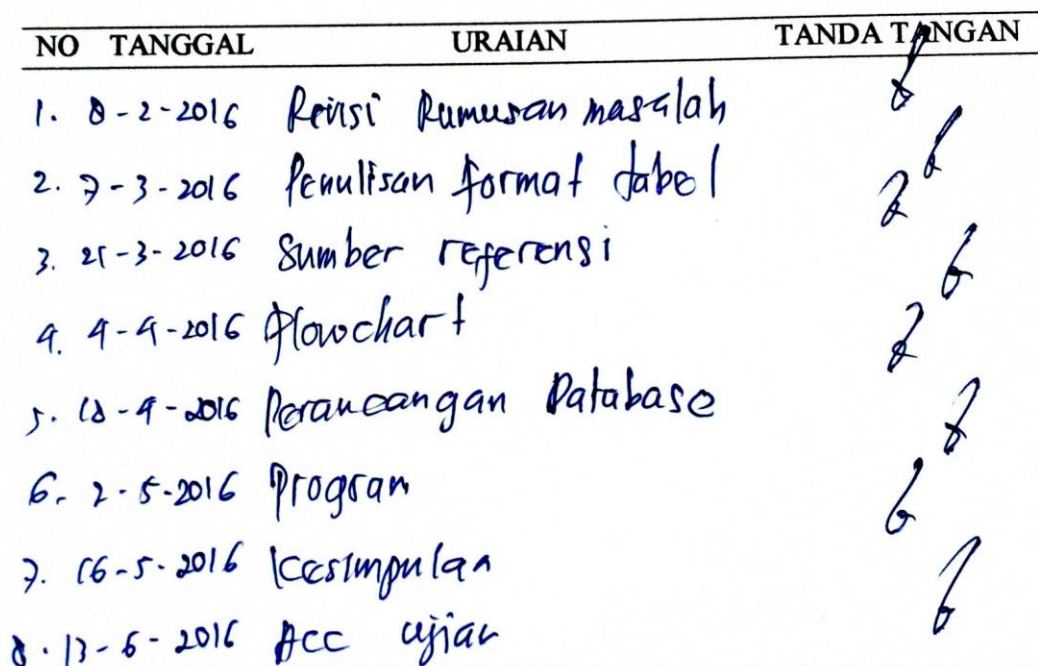 NO TANGGAL URAIAN TANDA TANGAN
1. 8-2-2016 Revisi Rumusan masalah
2. 7-3-2016 Penulisan format tabel
3. 21-3-2016 Sumber referensi
4. 4-4-2016 Flowchart
5. 18-4-2016 Perancangan Database
6. 2-5-2016 Program
7. 16-5-2016 Kesimpulan
8. 13-6-2016 Acc ujian